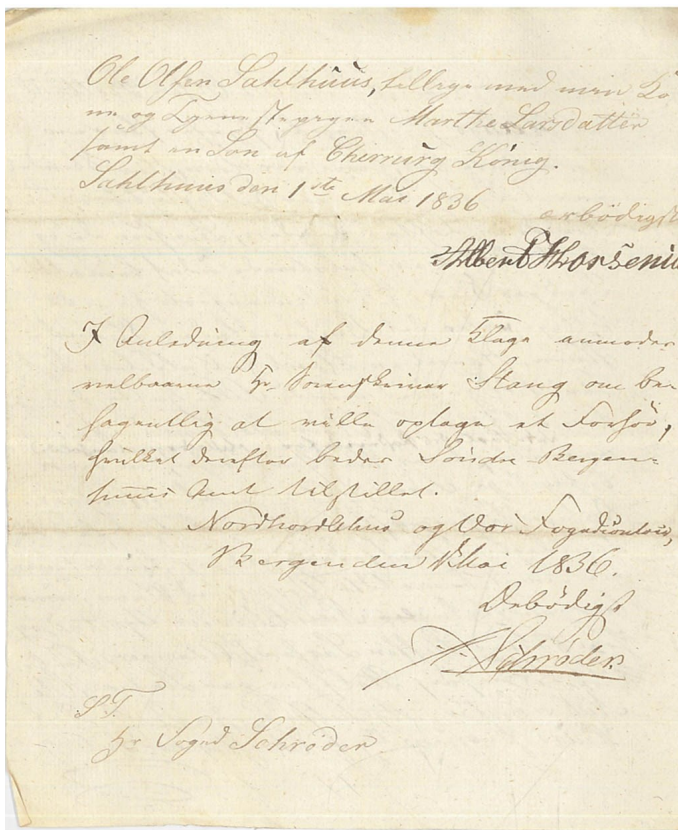 Ole Olsen Sahlhuus, tillige med min Ko
ne og Tjenestepigen Marthe Larsdatter
samt en Søn af Cherrurg König.
Sahlhuus den 1ste Mai 1836
ærbödigst
Albert
I Anledning af denne Klage anmodes
velbaarne Hr. Sorenskriver Stang om be-
hagentlig at ville optage et Forhör,
hvilket derefter bedes Söndre Bergen-
huus Amt tilstillet.
Nordhordlehns og Vos Fogedcontoir,
Bergen den Mai 1836.
Ærbödigst
Schröder
S. T.
Hr Foged Schröder